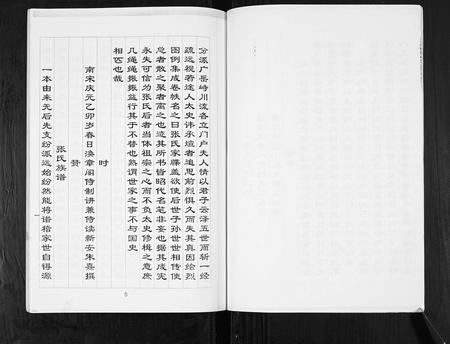 分派广岳峙川流各立门户夫人情以君子云泽五世而斩一经
疏远视若途人太史讳承煊者追思前烈惧久而失其真因绘烈
图例集成卷帙名之曰张氏家牒盖欲使后世子孙世世相传使
忽者散之聚者高之也迹其所书皆昭代名笔非妄也据其成宪
永失可信为张氏后者当体祖宗之心而不负太史修辑之意庶
几绳绳振振益行其于不替也孰谓世家之事不与国史
相匹也哉
时
南宋庆元乙卯岁春日涣章阁侍制讲兼侍读新安朱熹撰
赞
张氏族谱
一本由来无后先支纷派远始纷然能将谱稽家世自得源
5